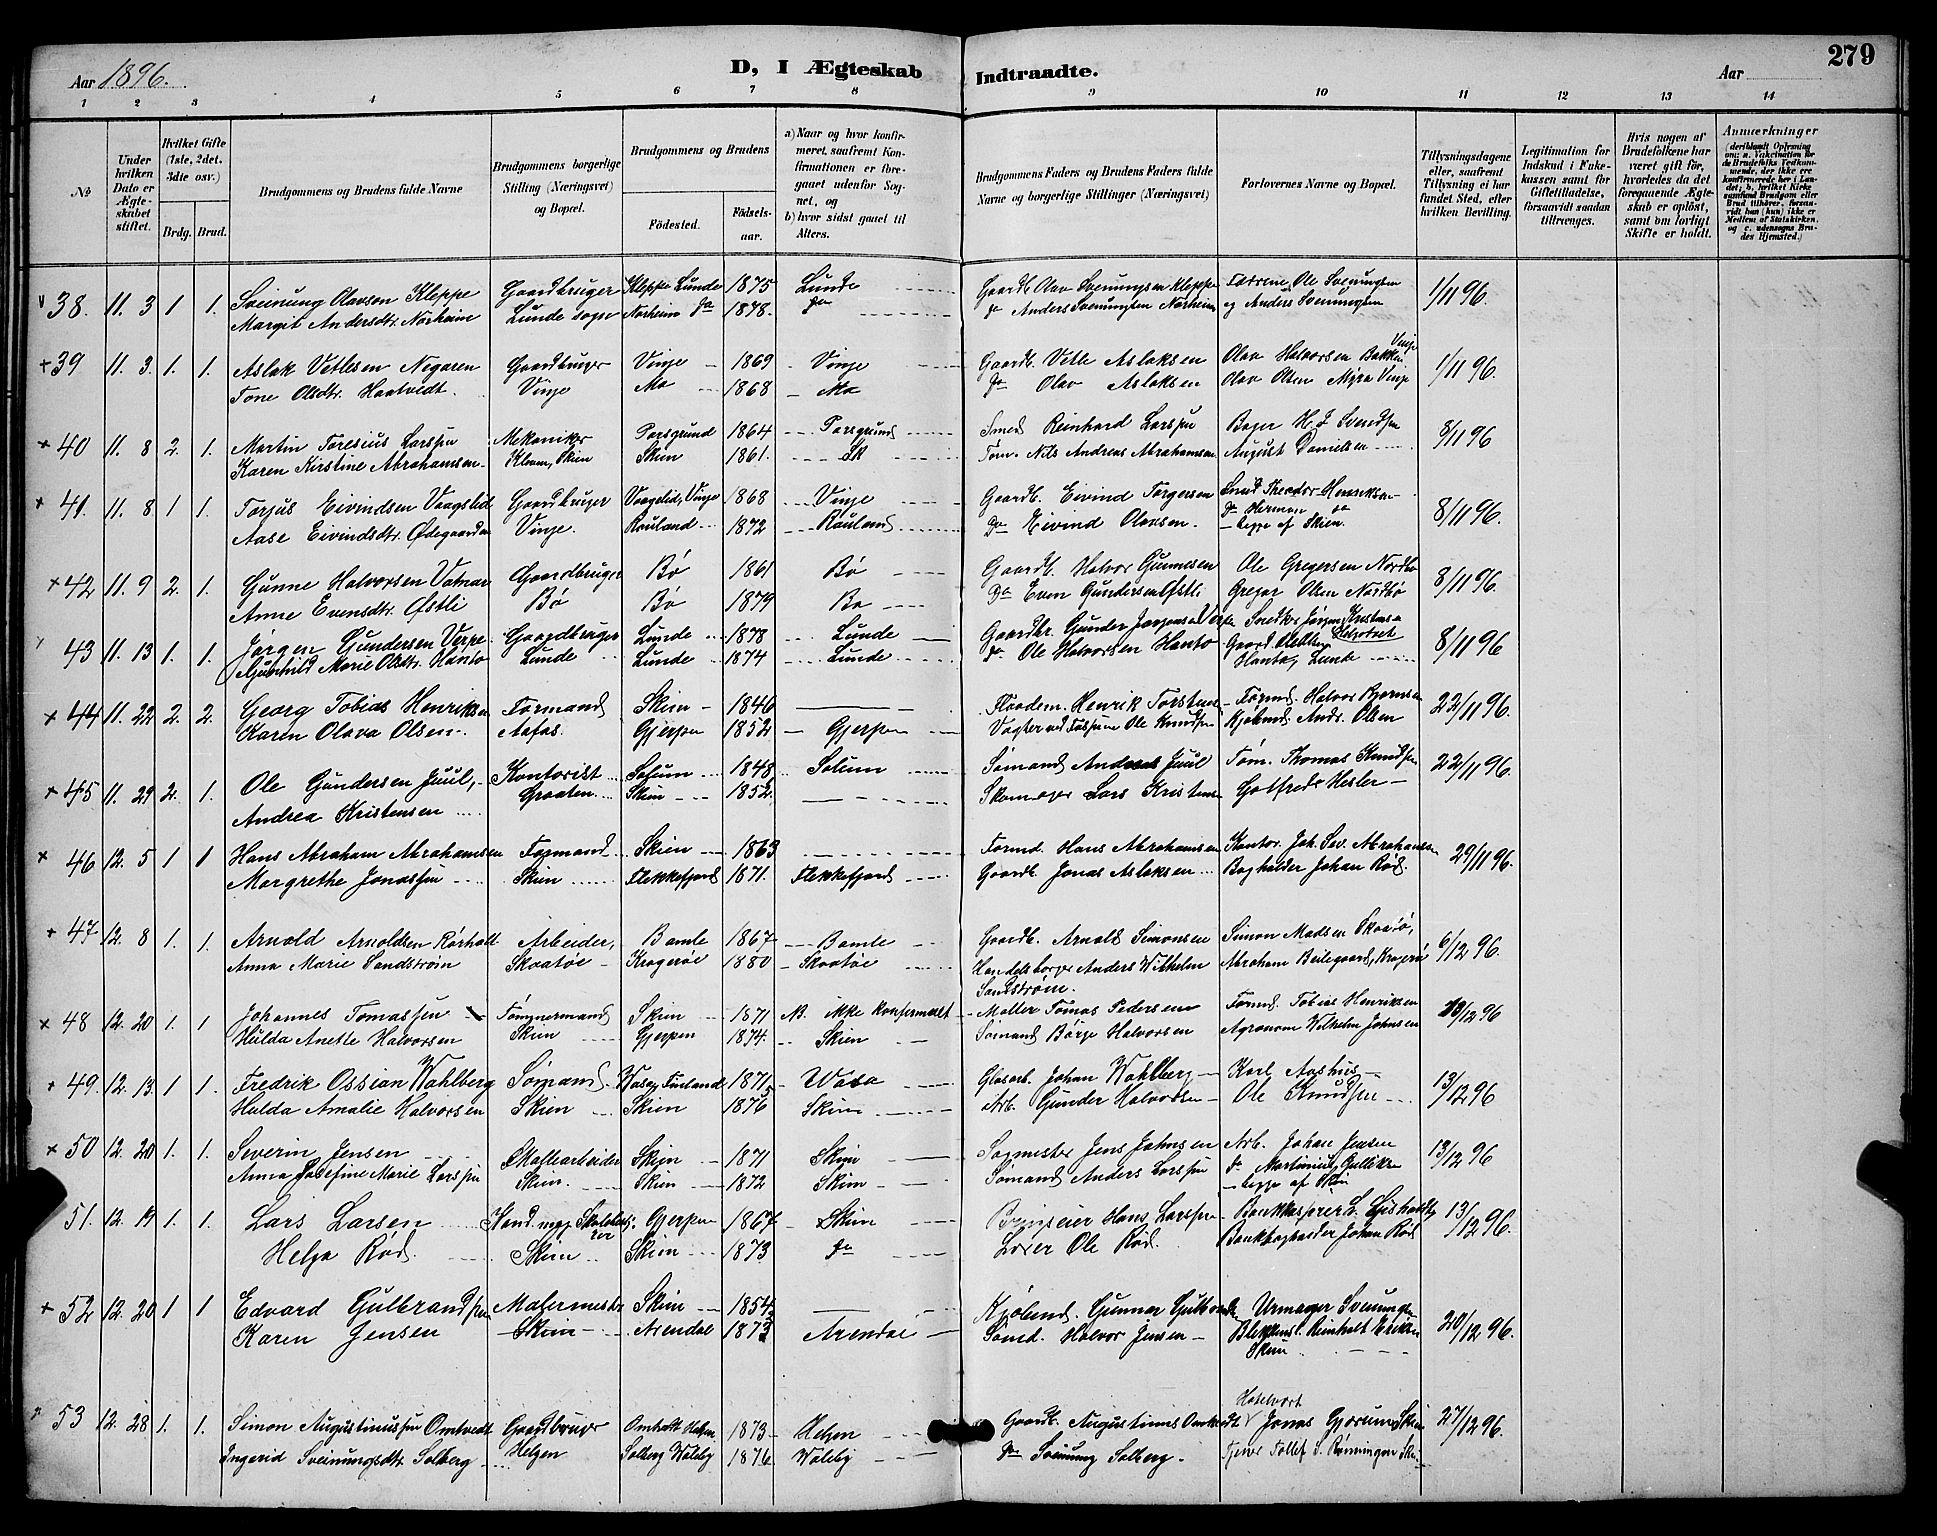 279
Aar 1896.
D, I Ægteskab Indtraadte.
Aar
1 2 3 4 5 6 7 8 9 10 11 12 13 14
№
Under hvilken Dato er Ægteskabet stiftet.
Hvilket Gifte (1ste, 2det. 3die osv.)
Brdg. Brud.
Brudgommens og Brudens fulde Navne
Brudgommens borgerlige Stilling (Næringsvei) og Bopæl.
Brudgommens og Brudens
Födested.
Födselsaar.
a) Naar og hvor konfirmeret, saafremt Konfirmationen er foregaaet udenfor Sognet, og
b) hvor sidst gaaet til Alters.
Brudgommens Faders og Brudens Faders fulde Navne og borgerlige Stillinger (Næringsvei)
Forlovernes Navne og Bopæl.
Tillysningsdagene eller, saafremt Tillysning ei har fundet Sted, efter hvilken Bevilling.
Legitimation for Indskud i Enkekassen samt for Giftetilladelse, forsaavidt saadan tiltrænges.
Hvis nogen af Brudefolkene har været gift för, hvorledes da det foregaaende Ægteskab er oplöst, samt om lovligt Skifte er holdt.
Anmærkninger (deriblandt Oplysning om: a. Vakcination for de Brudefolks Vedkommende, der ikke ere konfirmerede her i Landet; b. hvilket Kirkesamfund Brudgom eller Brud tilhörer, forsaavidt han (hun) ikke er Medlem af Statskirken, og c. udensogns Brudes Hjemsted.)
38. 11. 3 1 1. Sveinung Olavson Kleppe Gaardbruger Kleppe Lunde 1875 Lunde Gaardb. Olav Sveinungsen Kleppe Fædrene, Ole Sveinungsen 1/11 96.
Margit Andersdtr. Norheim Lunde sogn Norheim do 1878. do do Anders Sveinungsen Norheim og Anders Sveinungsen
39 11. 3. 1. 1. Aslak Vetlesen Negaren Gaardbruger Vinje 1869 Vinje Gaardb. Vetle Aslaksen Olav Halvorsen Bakken Vinje 1/11 96.
Tone Olsdtr. Haatvedt. Vinje Mo 1868 Mo do Olav Aslaksen Olav Olsen Myra Vinje
40 11. 8 2. 1. Martin Toresius Larssen Mekaniker Porsgrund 1864 Porsgrund Smed Reinhard Larssen Bager H. J. Svendsen 8/11 96
Karen Kirstine Abrahamsen Klevm, Skien Skien 1861. Sk Tøm. Nils Andreas Abrahamsen August Danielsen
41. 11. 8 1 1. Torjus Eivindsen Vaagslid Gaardbruger Vaagslid, Vinje 1868 Vinje Gaardb. Eivind Torgersen Smed Theodor Henriksen 8/11 96.
Aase Eivindsdtr. Ødegaarden Vinje. Rauland 1872 Rauland do Eivind Olavsen. do Herman do begge af Skien.
42 11. 9 2. 1. Gunne Halvorsen Vatnar Gaardbruger Bö 1861 Bö Gaardb. Halvor Gunnesen Ole Gregersen Nordbø 8/11 96.
Anne Evensdtr. Østli Bö Bö 1879 Bø do Even Gundersen Østli Gregar Olsen Nordbö
43 11. 13 1. 1. Jørgen Gundersen Verpe Gaardbruger Lunde 1878 Lunde Gaardbr. Gunder Jørgensen Verpe Snedker Jørgen Kristensen 8/11 96
Gunhild Marie Olsdtr. Hantø Lunde Lunde 1874 Lunde do Ole Halvorsen Hantø Hantø, Lunde
44 11. 22 2. 2. Georg Tobias Henriksen Formand Skien 1846 Flaadem. Henrik Torstens Formd. Halvor Bjørnsen 22/11 96.
Karen Olava Olsen. Aafos. Gjerpen 1852 Gjerpen Vagter ved Fossum Ole Knudsen Kjøbmd. Andr. Olsen
45 11. 29 2. 1. Ole Gundersen Juul, Kontorist Solum 1848 Solum Sømand Andreas Juul Tøm. Thomas Knudsen 22/11 96.
Andrea Kristensen Graaten Skien 1852 Skomager Lars Kristensen Gotfred Hesler
46 12. 5 1 1 Hans Abraham Abrahamsen Formand Skien 1863 Formd. Hans Abrahamsen Kontor. Joh. Sev. Abrahamsen 29/11 96.
Margrethe Jonassen Skien Flekkefjord 1871. Flekkefjord Gaardb. Jonas Aslaksen Bogholder Johan Rød.
47 12. 8 1. 1. Arnold Arnoldsen Rørholt Arbeider, Bamle 1867 Bamle Gaardb. Arnold Simonsen Simon Madsen Skaatø, 6/12 96.
Anna Marie Sandstrøm Skaatøe Kragerøe 1880 Skaatøe Handelsborger Anders Wilhelm Sandstrøm. Abraham Beilegaard, Kragerø
48 12. 20 1. 1 Johannes Tomassen Tømmermand Skien 1871 N. ikke konfirmert Møller Tomas Pedersen Formd. Tobias Henriksen 13/12 96
Hulda Anette Halvorsen Skien Gjerpen 1874. Skien Sømand Börge Halvorsen Agronom Wilhelm Johnsen
49. 12. 13. 1 1. Fredrik Ossian Wahlberg Sømand Wasa, Finland 1871 Wasa Glasarb. Johan Wahlberg Karl Aashus 13/12 96
Hulda Amalie Halvorsen Skien Skien 1876 Skien Arb. Gunder Halvorsen Ole Knudsen
50 12. 20 1. 1. Severin Jensen Møllearbeider Skien 1871 Skien Sagmester Jens Johnsen Arb. Johan Jensen 13/12 96
Anna Josefine Marie Larssen Skien. Skien 1872 Skien Sømand Anders Larssen do Martinius Gulliksen begge af Skien
51. 12. 19 1. 1. Lars Larsen Gjerpen 1867 Skien Hans Larssen 13/12 96.
Helga Rød. Skien Skien 1873 do Loser Ole Rød. Bankbogholder Johan Rød
52 12. 20 1 1 Edvard Gulbrandsen Malermester Skien 1854 Kjøbmd. Gunnar Gulbrandsen Urmager Sveinungsen 20/12 96.
Karen Jensen Skien Arendal 1873 Arendal Sømd. Halvor Jensen Blikkensl. Reinholt Eriksen Skien
53 12. 28 1. 1. Simon Augustinussen Omtvedt Gaardbruger Omtvedt Helgen 1873 Helgen Gaardb. Augustinus Omtvedt Hotelvært Jonas Gjærum Skien 27/12 96.
Ingerid Sveinungsdtr. Solberg Helgen Solberg Valeby 1876 Valeby do Sveinung Solberg. Tollef S. Rønningen Skien